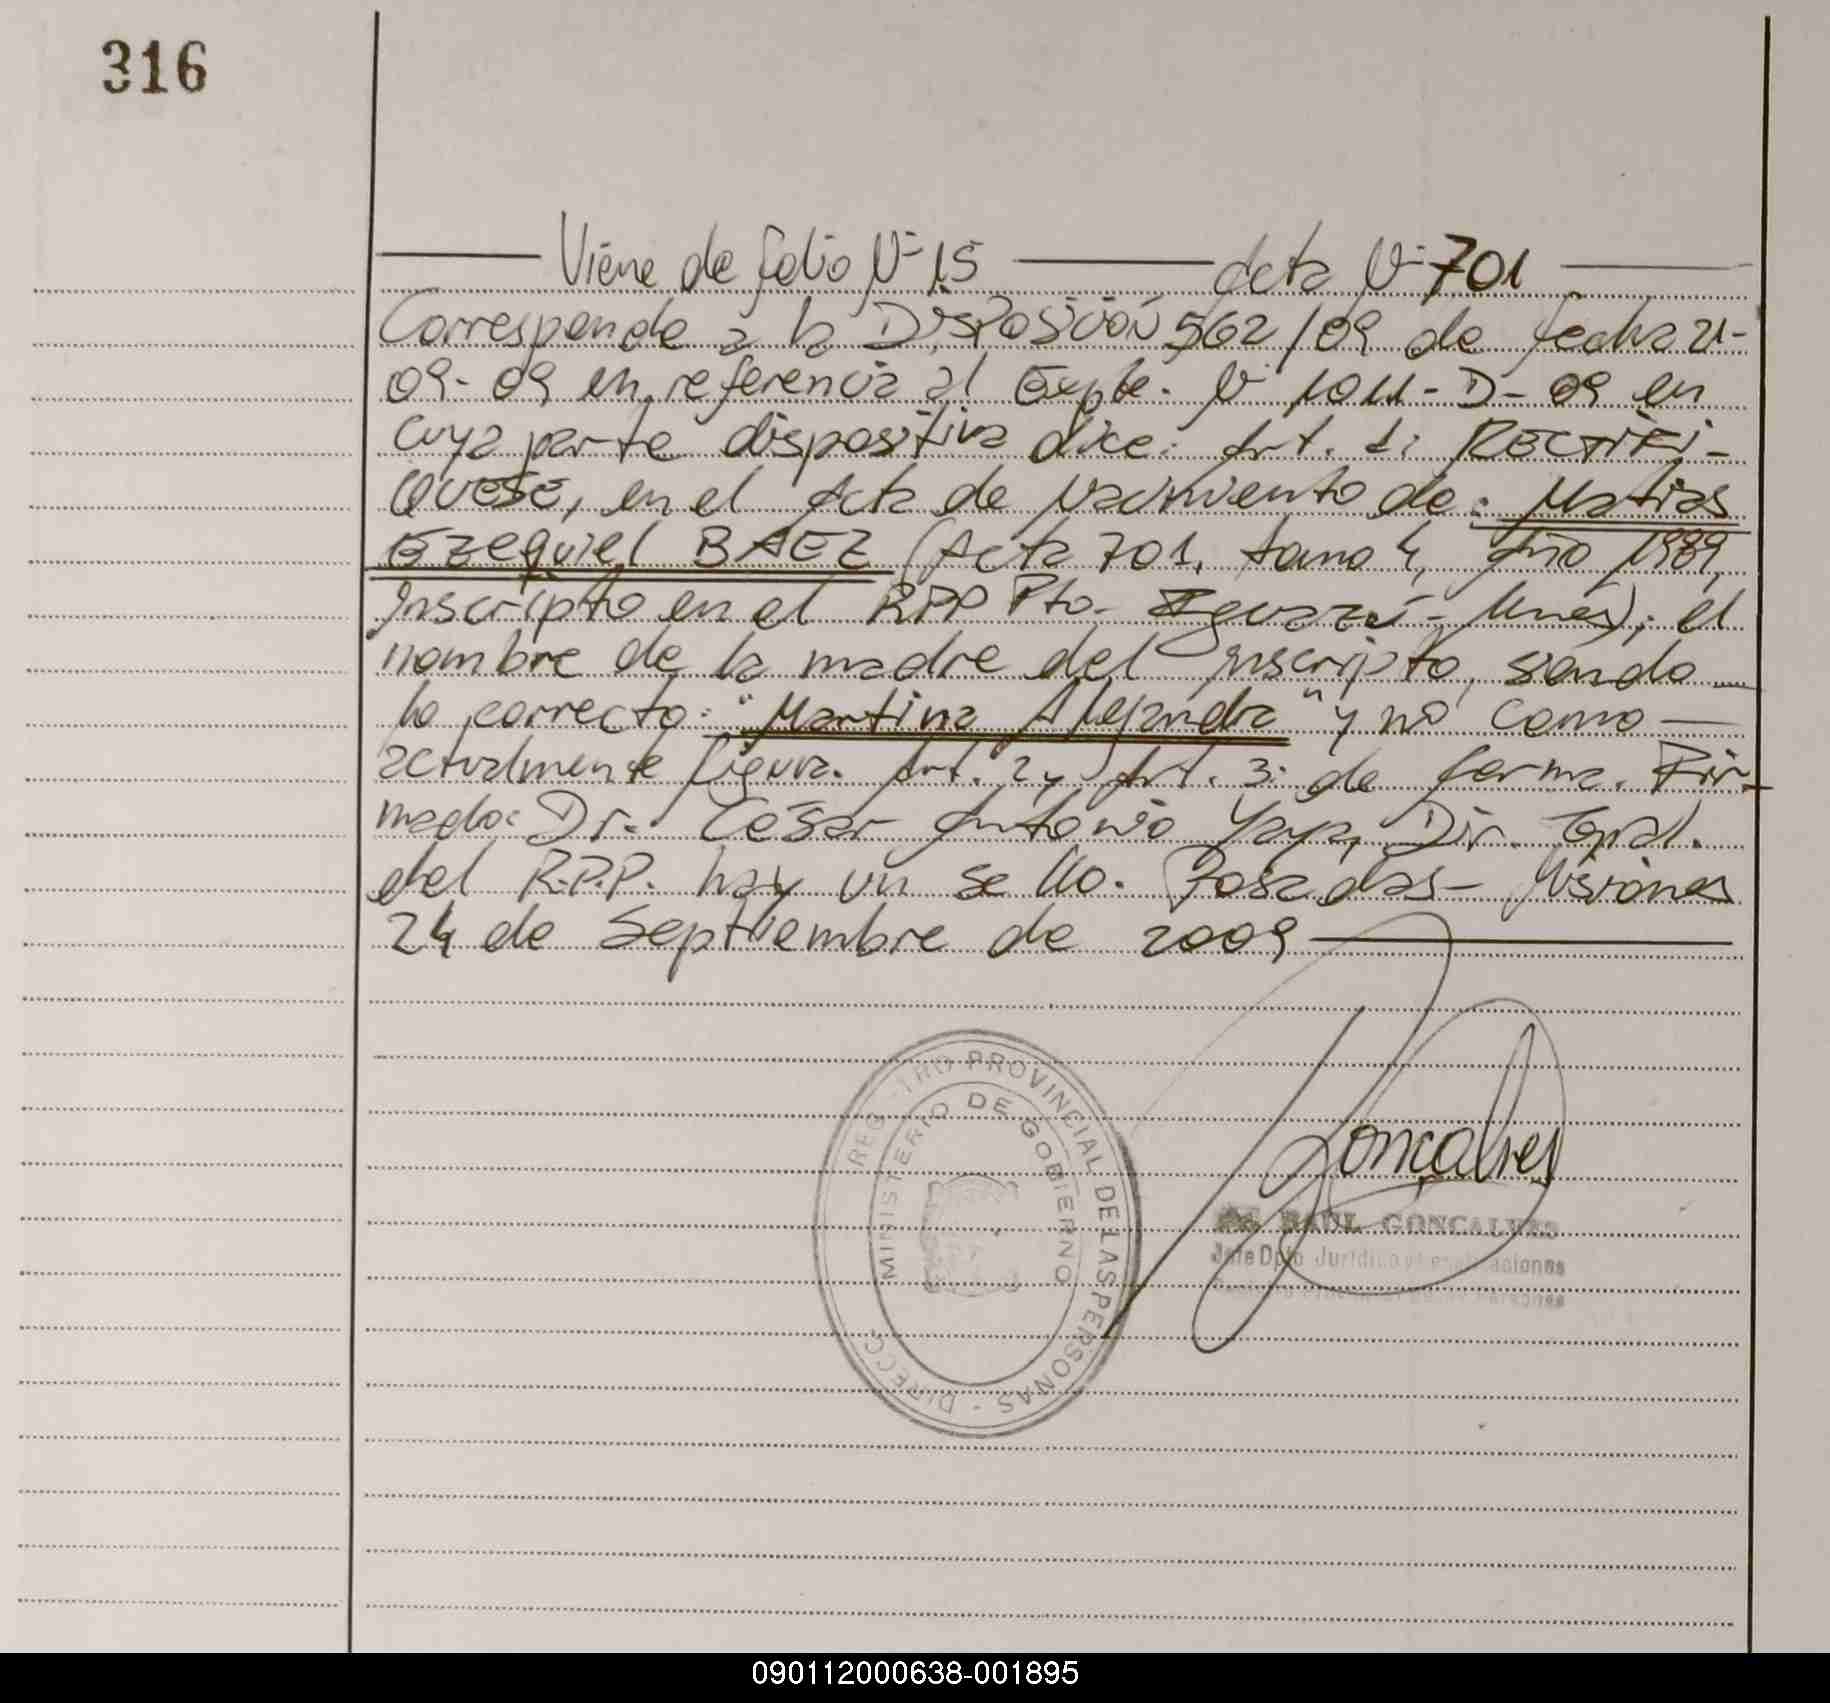 316
Viene de folio Nº 15 — Acta Nº 701
Corresponde a la DISPOSICIÓN 562/09 de fecha 21-
09-09 en referencia al Expte. Nº 1011-D-09 en
cuya parte dispositiva dice: Art. 1: RECTIFI-
QUESE, en el Acta de Nacimiento de: Matias
Ezequiel BAEZ (Acta 701, tomo 4, Año 1989,
Inscripto en el RPP Pto. Iguazú - Mnes); el
nombre de la madre del inscripto, siendo
lo correcto: "Martina Alejandra" y no como
actualmente figura. Art. 2 y Art. 3: de forma. Fir-
mado: Dr. César Antonio Yaya, Dir. Gral.
del R.P.P. hay un sello. Posadas - Misiones
24 de Septiembre de 2009
REGISTRO PROVINCIAL DE LAS PERSONAS - DIRECC
MINISTERIO DE GOBIERNO
Goncalves
RAUL GONCALVES
Jefe Dpto Jurídico y
Personas
090112000638-001895